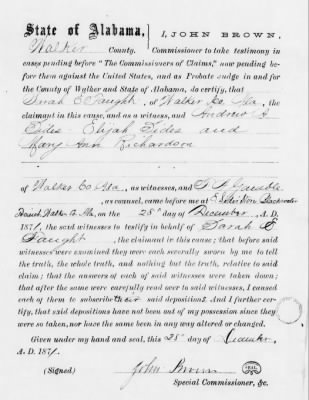 State of Alabama, I, JOHN BROWN,
Walker County. Commissioner to take testimony in
cases pending before "The Commissioners of Claims," now pending be-
fore them against the United States, and as Probate Judge in and for
the County of Walker and State of Alabama, do certify, that
Sarah E Faught, of Walker Co, Ala, the
claimant in this cause, and as a witness, and Andrew A
Sides Elijah Sides and
Mary Ann Richardson
of Walker Co Ala, as witnesses, and
as counsel, came before me at
Walker Co Ala, on the 28th day of December, A. D.
1871, the said witnesses to testify in behalf of Sarah E
Faught, the claimant in this cause; that before said
witnesses were examined they were each severally sworn by me to tell
the truth, the whole truth, and nothing but the truth, relative to said
claim; that the answers of each of said witnesses were taken down;
that after the same were carefully read over to said witnesses, I caused
each of them to subscribe their said depositions. And I further cer-
tify, that said depositions have not been out of my possession since they
were so taken, nor have the same been in any way altered or changed.
Given under my hand and seal, this 28th day of December,
A. D. 1871.
(Signed) John Brown SEAL
Special Commissioner, &c.